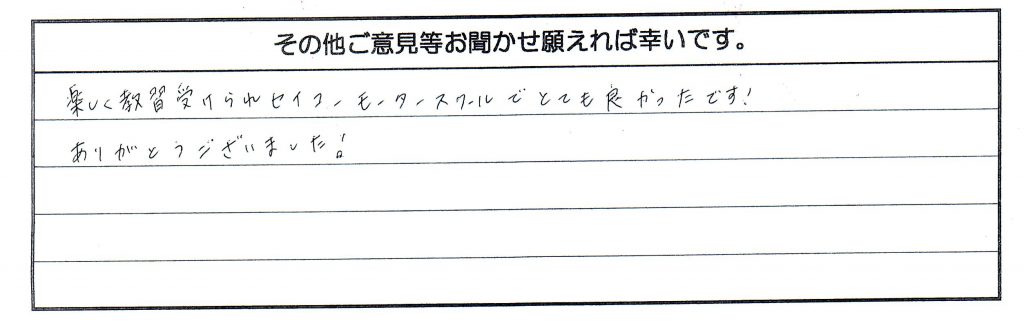 その他ご意見等お聞かせ願えれば幸いです。
楽しく教習受けられセイコーモータースクールでとても良かったです!
ありがとうございました!